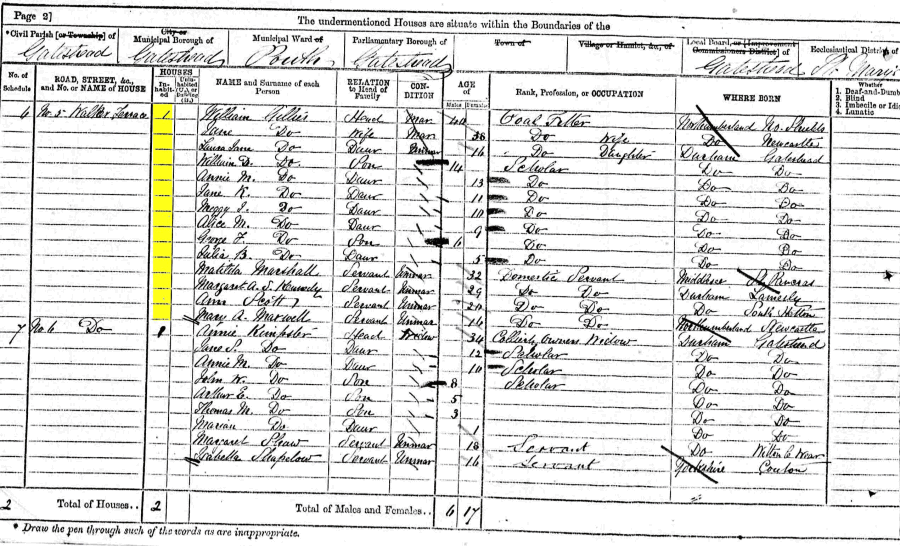 Page 2]
The undermentioned Houses are situate within the Boundaries of the
*Civil Parish [or Township] of
Gateshead
City or Municipal Borough of
Gateshead
Municipal Ward of
South
Parliamentary Borough of
Gateshead
Town of
Village or Hamlet, &c., of
Local Board, or [Improvement Commissioners District] of
Gateshead
Ecclesiastical District of
St. Mary's
No. of Schedule
ROAD, STREET, &c., and No. or NAME of HOUSE
HOUSES
Inhabited
Uninhabited (U.), or Building (B.)
NAME and Surname of each Person
RELATION to Head of Family
CONDITION
AGE of
Males
Females
Rank, Profession, or OCCUPATION
WHERE BORN
Whether
1. Deaf-and-Dumb
2. Blind
3. Imbecile or Idiot
4. Lunatic
6 No. 5 Walker Terrace 1 William Head Mar 40 Coal Fitter Northumberland No. Shields
Jane Do Wife Mar 38 Do Wife Do Newcastle
Laura Jane Do Daur Unmar 16 Do Daughter Durham Gateshead
William D. Do Son 14 Scholar Do Do
Annie M. Do Daur 13 Do Do Do
Jane K. Do Daur 11 Do Do Do
Meggy I. Do Daur 10 Do Do Do
Alice M. Do Daur 9 Do Do Do
George F. Do Son 6 Do Do Do
Julia B. Do Daur 5 Do Do Do
Matilda Marshall Servant Unmar 32 Domestic Servant Middlesex St Pancras
Margaret A. S. Servant Unmar 29 Do Do Durham Lamesly
Ann Scott Servant Unmar 20 Do Do Do South Hetton
Mary A. Maxwell Servant Unmar 16 Do Do Northumberland Newcastle
7 No. 6 Do 1 Annie Head Widow 34 Colliery Owners Widow Durham Gateshead
Jane S. Do Daur 12 Scholar Do Do
Annie M. Do Daur 10 Scholar Do Do
John W. Do Son 8 Scholar Do Do
Arthur E. Do Son 5 Do Do
Thomas M. Do Son 3 Do Do
Marian Do Daur 1 Do Do
Margaret Servant Unmar 18 Servant Do Witton le Wear
Isabella Servant Unmar 16 Servant Yorkshire
2 Total of Houses.. 2 Total of Males and Females.. 6 17
* Draw the pen through such of the words as are inappropriate.